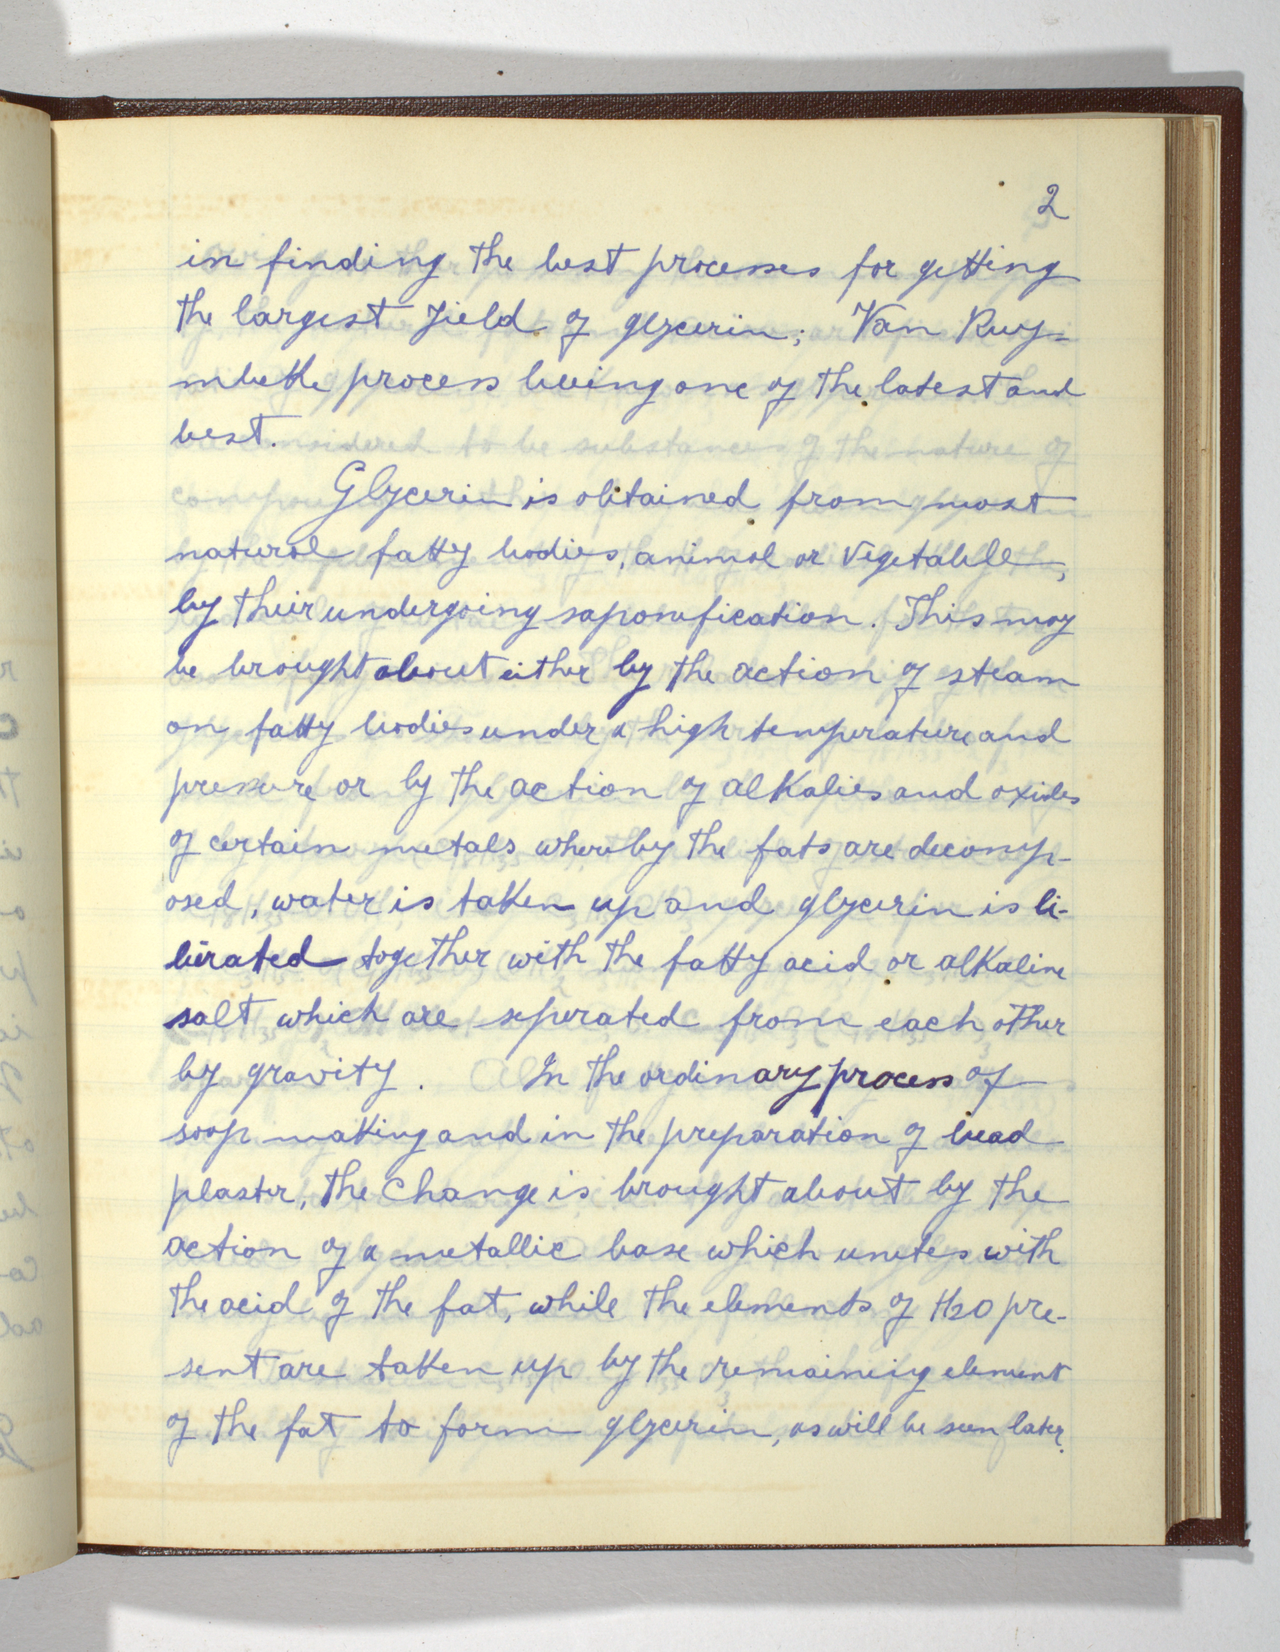 2
in finding the best processes for getting
the largest yield of glycerin; Van Ruy-
mbeke process being one of the latest and
best.
Glycerin is obtained from most
natural fatty bodies, animal or vegetable,
by their undergoing saponification. This may
be brought about either by the action of steam
on fatty bodies under a high temperature and
pressure or by the action of alkalies and oxides
of certain metals whereby the fats are decomp-
osed, water is taken up and glycerin is li-
berated together with the fatty acid or alkaline
salt which are seperated from each other
by gravity. In the ordinary process of
soap making and in the preparation of lead
plaster, the change is brought about by the
action of a metallic base which unites with
the acid of the fat, while the elements of H2O pre-
sent are taken up by the remaining element
of the fat to form glycerin, as will be seen later.